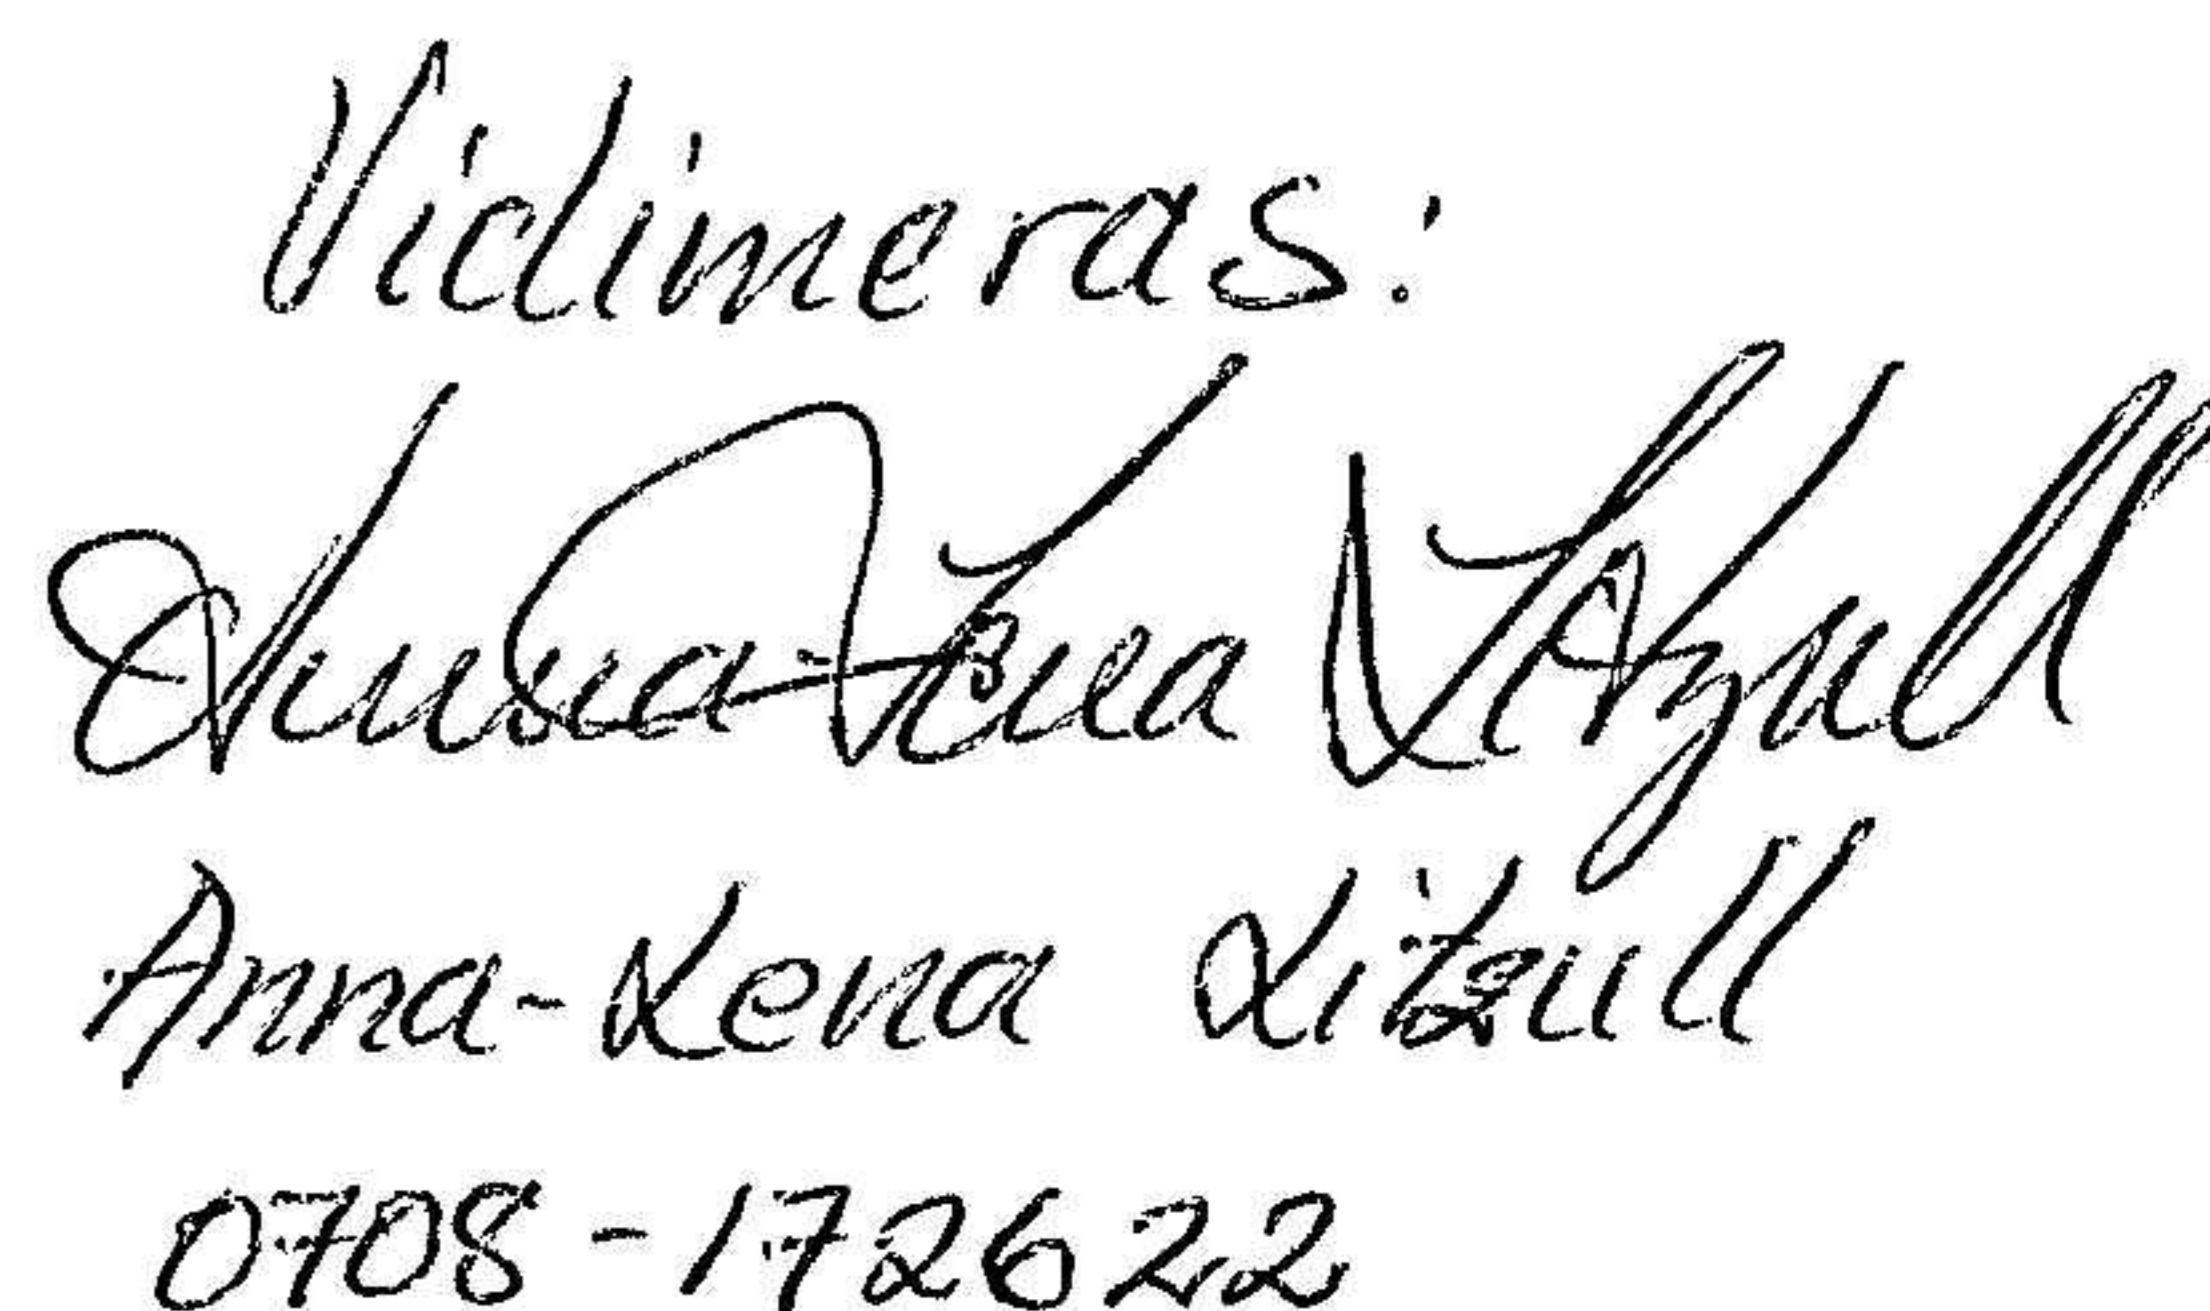 Vidimeras:
Anna-Lena Litzull
Anna-Lena Litzull
0708-172622